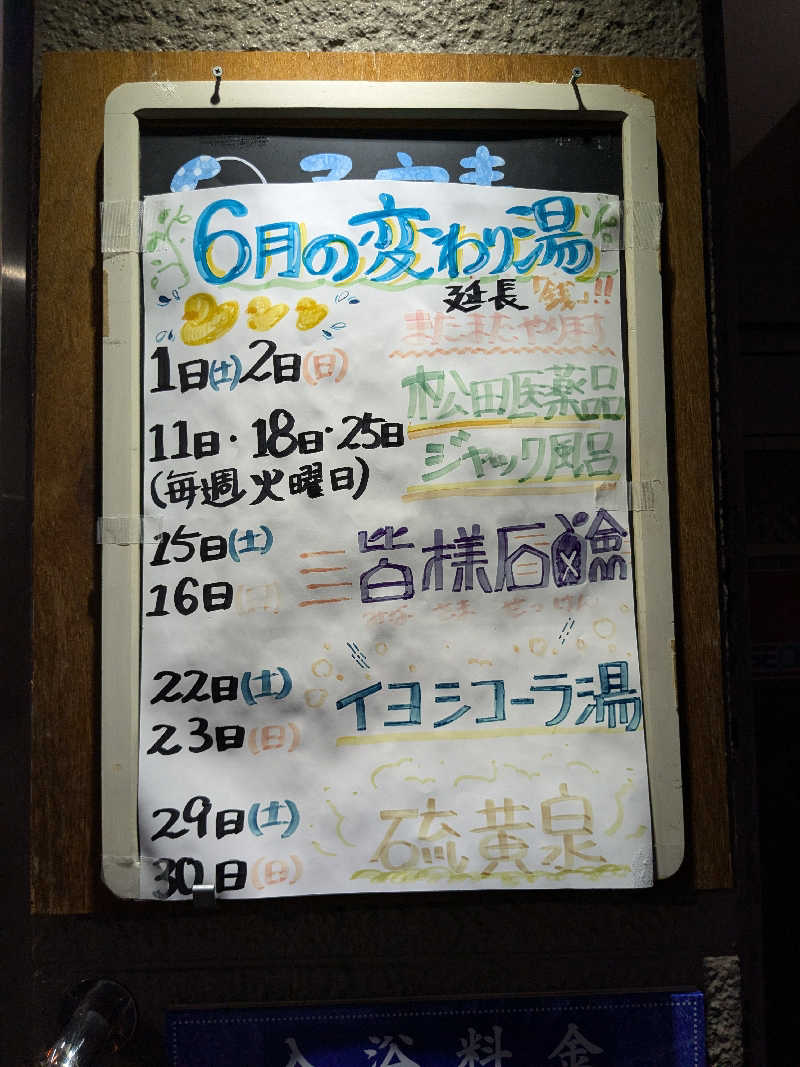 6月の変わり湯
延長「銭」!!
まだまだやります
1日(土)2日(日)
松田医薬品
11日・18日・25日
(毎週火曜日)
ジャック風呂
15日(土)
16日(日)
皆様石鹸
22日(土)
23日(日)
イヨシコーラ湯
29日(土)
30日(日)
硫黄泉
入浴料金